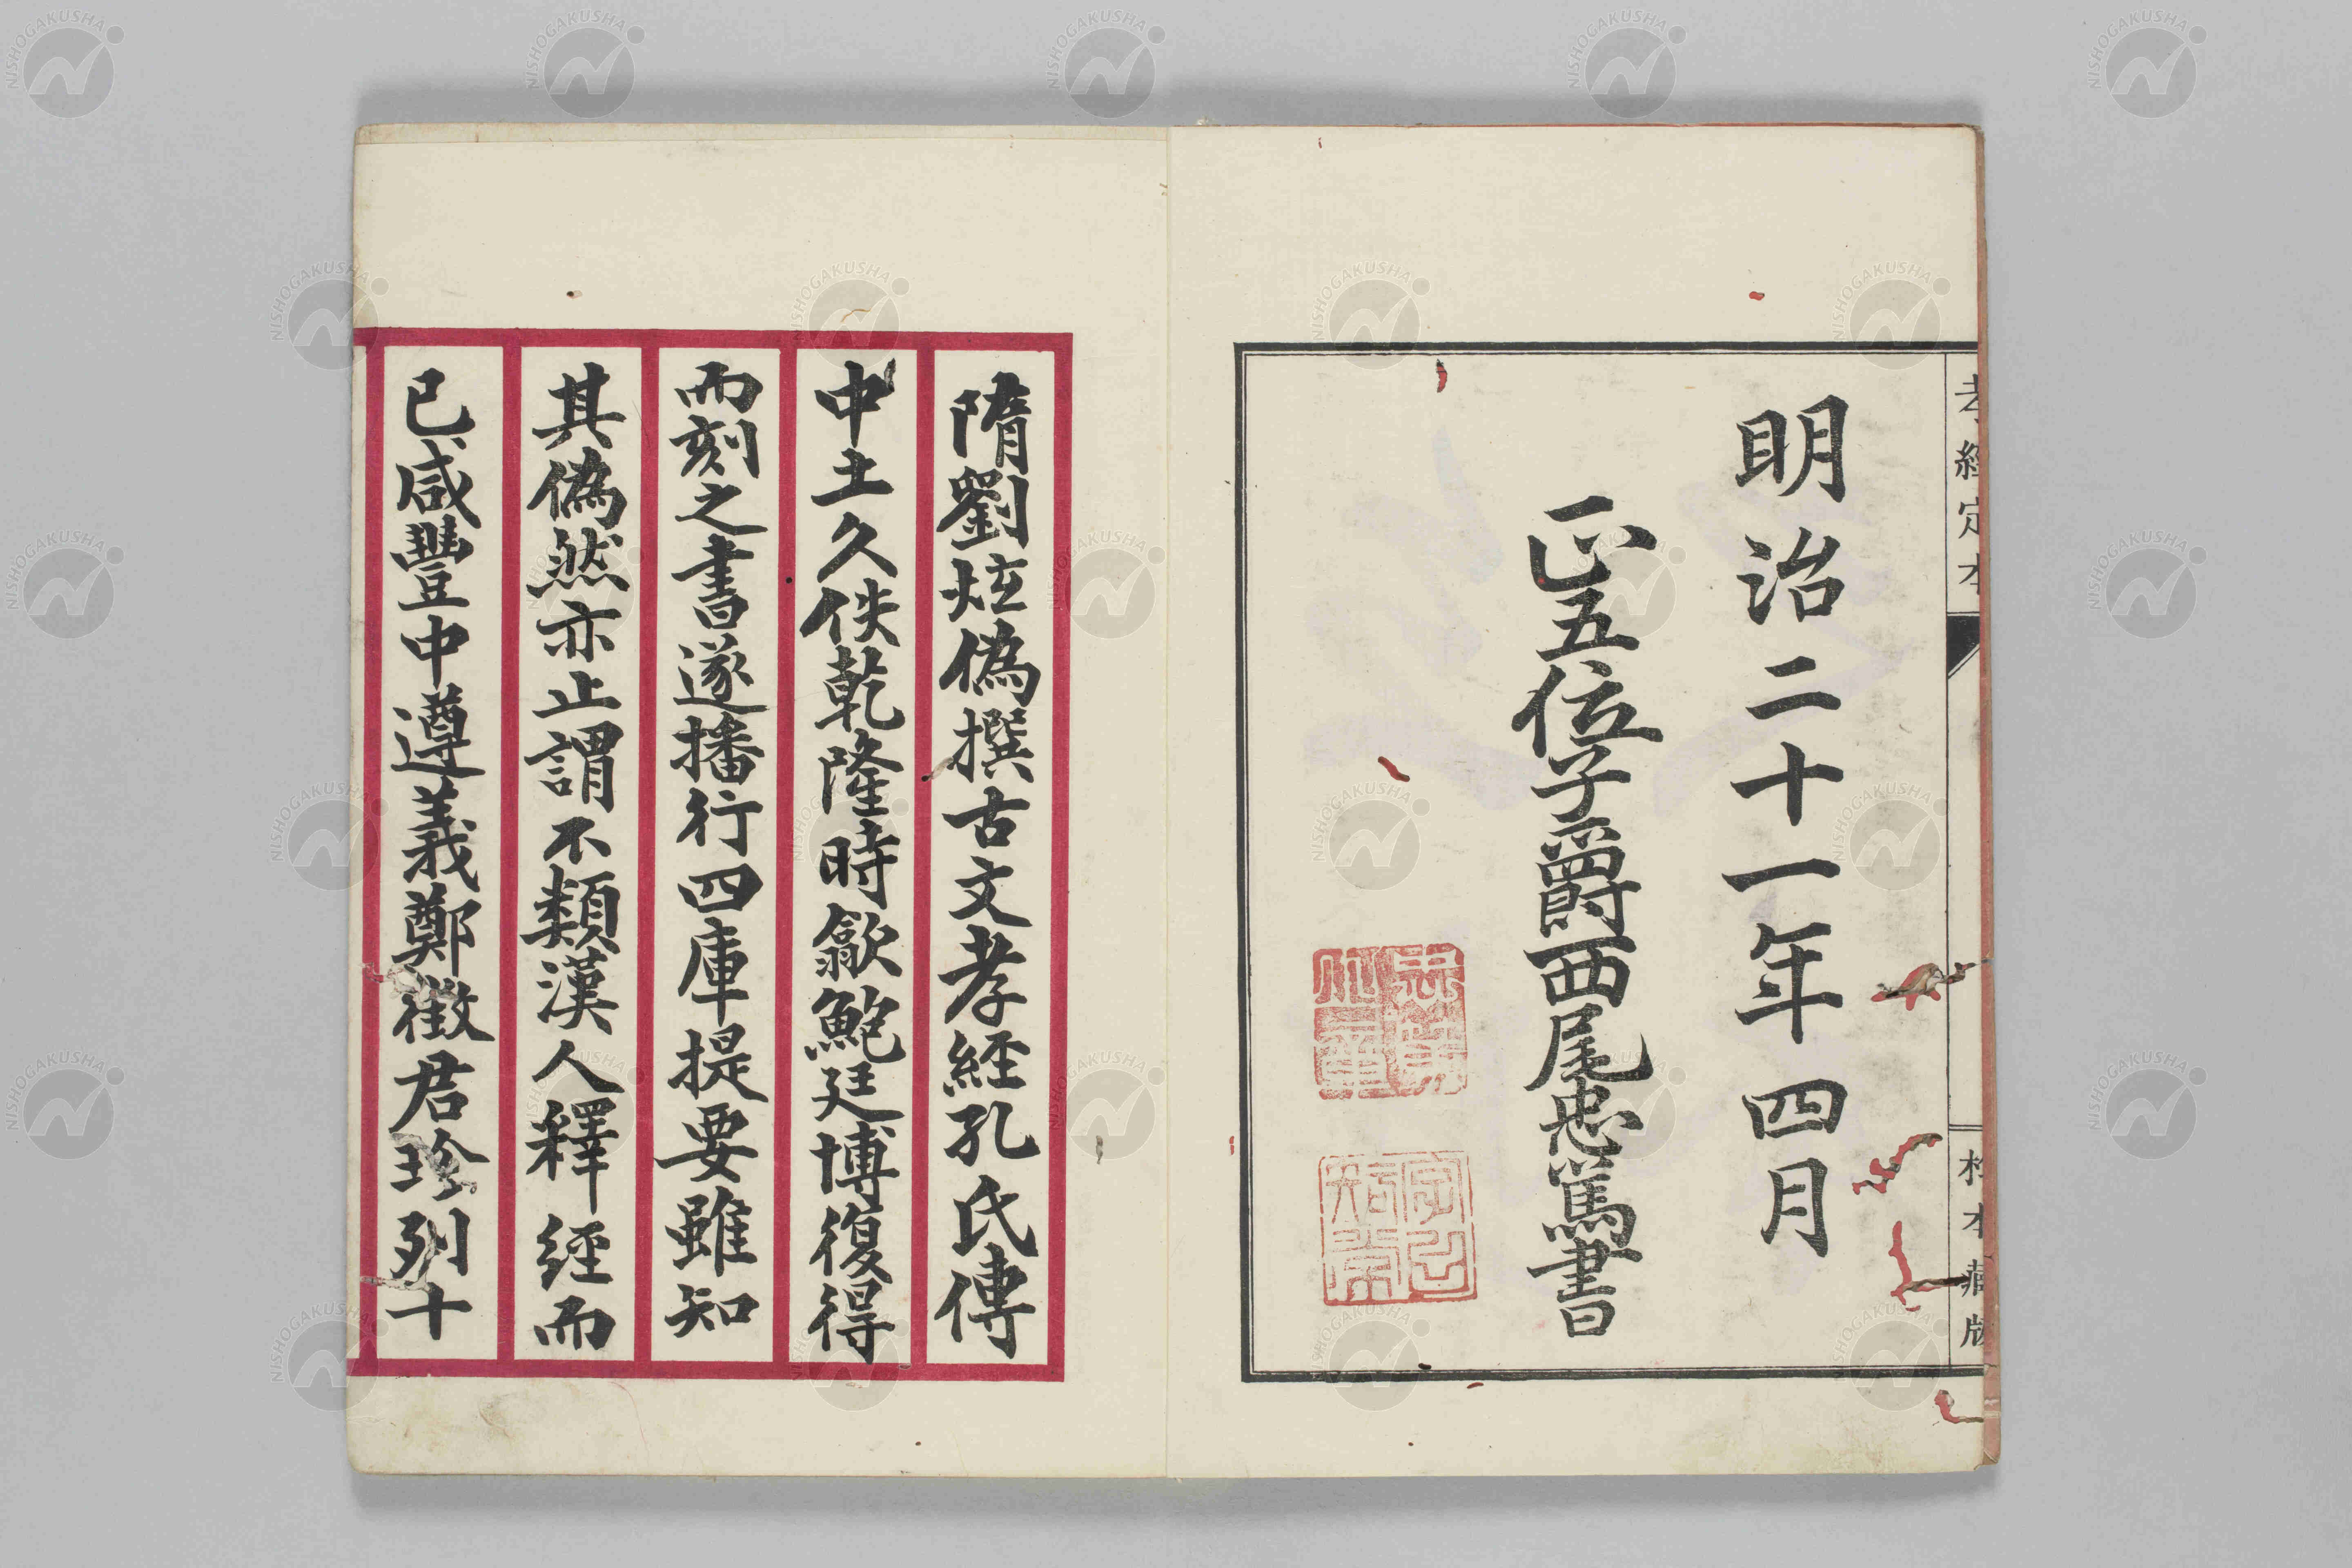 孝經定本
村本藏版
明治二十一年四月
正五位子爵西尾忠篤書
隋劉炫偽撰古文孝經孔氏傳
中土久佚乾隆時歙鮑廷博復得
而刻之書遂播行四庫提要雖知
其偽然亦止謂不類漢人釋經而
已咸豐中遵義鄭徵君珍列十
NISHOGAKUSHA